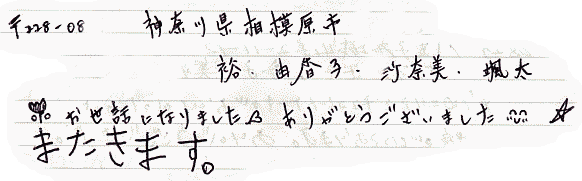 〒228-08 神奈川県相模原市
裕.由香子.沙奈美.颯太
お世話になりました ありがとうございました ☆
またきます。